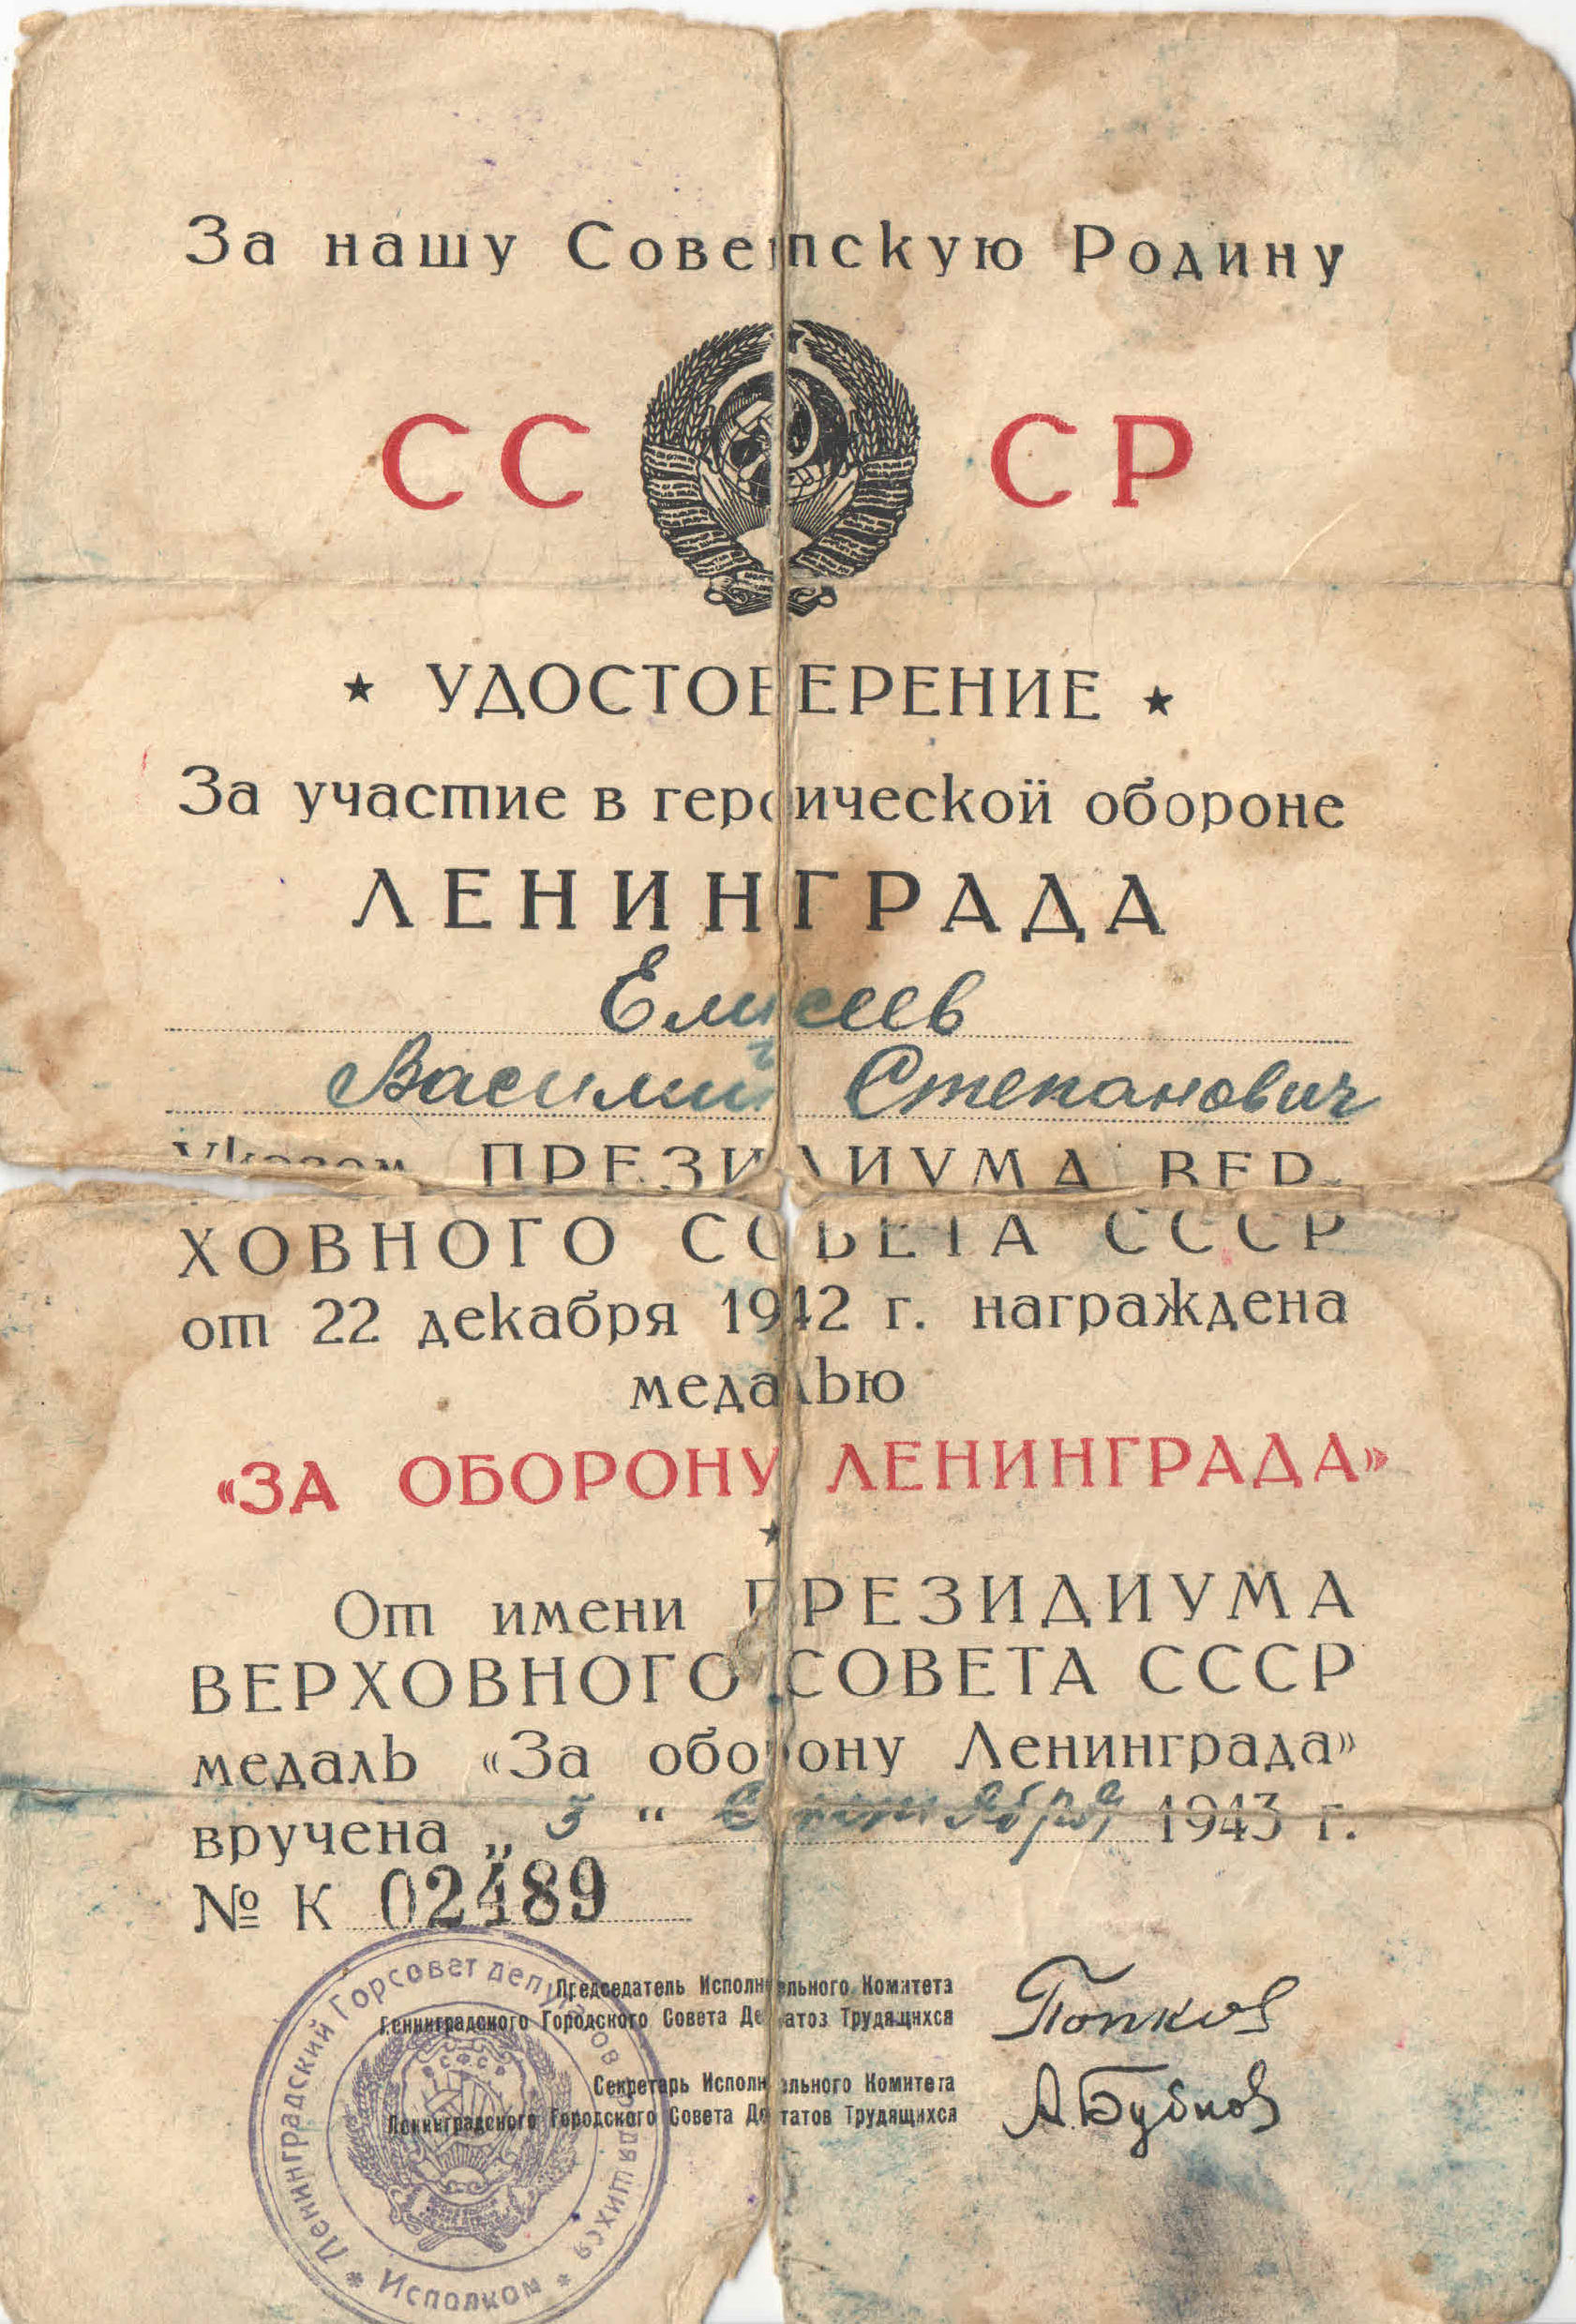 За нашу Советскую Родину
СС СР
★ УДОСТОВЕРЕНИЕ ★
За участие в героической обороне
ЛЕНИНГРАДА
Елисеев
Василий Степанович
Указом ПРЕЗИДИУМА ВЕР-
ХОВНОГО СОВЕТА СССР
от 22 декабря 1942 г. награждена
медалью
«ЗА ОБОРОНУ ЛЕНИНГРАДА»
★
От имени ПРЕЗИДИУМА
ВЕРХОВНОГО СОВЕТА СССР
медаль «За оборону Ленинграда»
вручена „ 3 “ Сентября 1943 г.
№ К 02489
Председатель Исполнительного Комитета
Ленинградского Городского Совета Депутатов Трудящихся
Попков
Секретарь Исполнительного Комитета
Ленинградского Городского Совета Депутатов Трудящихся
А. Бубнов
Ленинградский Горсовет депутатов трудящихся
* Исполком *
РСФСР